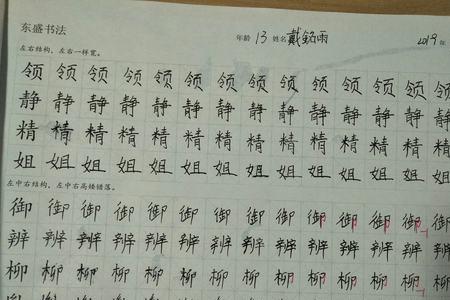 东盛书法 年龄 13 姓名 戴铭雨 2019 年
左右结构，左右一样宽。
领 领 领 领 领 领 领 领 领 领 领 领 领 领
静 静 静 静 静 静 静 静 静 静 静 静 静 静
精 精 精 精 精 精 精 精 精 精 精 精 精 精
姐 姐 姐 姐 姐 姐 姐 姐 姐 姐 姐 姐 姐 姐
左中右结构，左中右高矮错落。
御 御 御 御 御 御 御 御 御 御 御 御 御 御
辨 辨 辨 辨 辨 辨 辨 辨 辨 辨 辨 辨 辨 辨
柳 柳 柳 柳 柳 柳 柳 柳 柳 柳 柳 柳 柳 柳